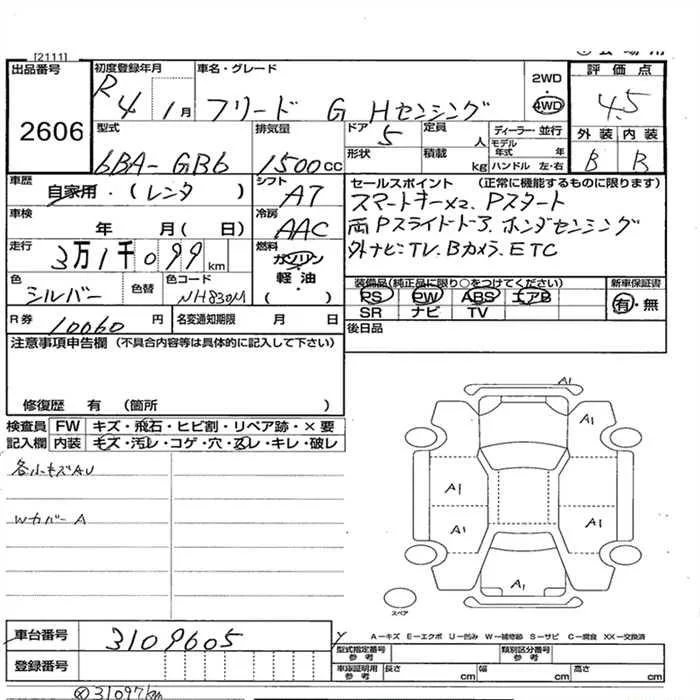 [2111]
出品番号 2606
初度登録年月 R4 1月
車名・グレード フリード G Hセンシング
2WD 4WD
評価点 4.5
外装 内装
B B
型式 6BA-GB6
排気量 1500cc
ドア 5 形状
定員 人 積載 kg
ディーラー・並行
モデル年式 年
ハンドル 左・右
車歴 自家用・(レンタ)
シフト A7
セールスポイント (正常に機能するものに限ります)
スマートキーx2、Pスタート
両Pスライドドア、ホンダセンシング
外ナビ:TV、Bカメラ、ETC
車検 年 月(日)
冷房 AAC
走行 3万1千099km
燃料 ガソリン・軽油・( )
色 シルバー 色替
色コード NH830M
装備品(純正品に限り○をつけてください)
PS PW ABS エアB
SR ナビ TV
新車保証書 有・無
R券 10060円
名変通知期限 月 日
後日品
注意事項申告欄 (不具合内容等は具体的に記入して下さい)
修復歴 有 (箇所 )
検査員記入欄
FW キズ・飛石・ヒビ割・リペア跡・×要
内装 キズ・汚レ・コゲ・穴・スレ・キレ・破レ
各小キズAU
Wカバー A
A1
A1
A1
A1
A1
A1
スペア
A―キズ E―エクボ U―凹み W―補修跡 S―サビ C―腐食 XX―交換済
車台番号 3109605
登録番号
型式指定番号 参考
類別区分番号 参考
車庫証明用 参考 長さ cm 幅 cm 高さ cm
31097km